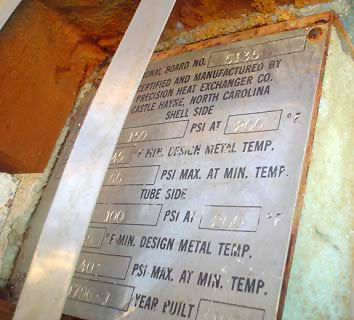 ONAL BOARD NO. 5135
CERTIFIED AND MANUFACTURED BY
PRECISION HEAT EXCHANGER CO.
CASTLE HAYNE, NORTH CAROLINA
SHELL SIDE
150 PSI AT 200 °F
°F MIN. DESIGN METAL TEMP.
PSI MAX. AT MIN. TEMP.
TUBE SIDE
PSI AT 200 °F
°F MIN. DESIGN METAL TEMP.
PSI MAX. AT MIN. TEMP.
YEAR BUILT